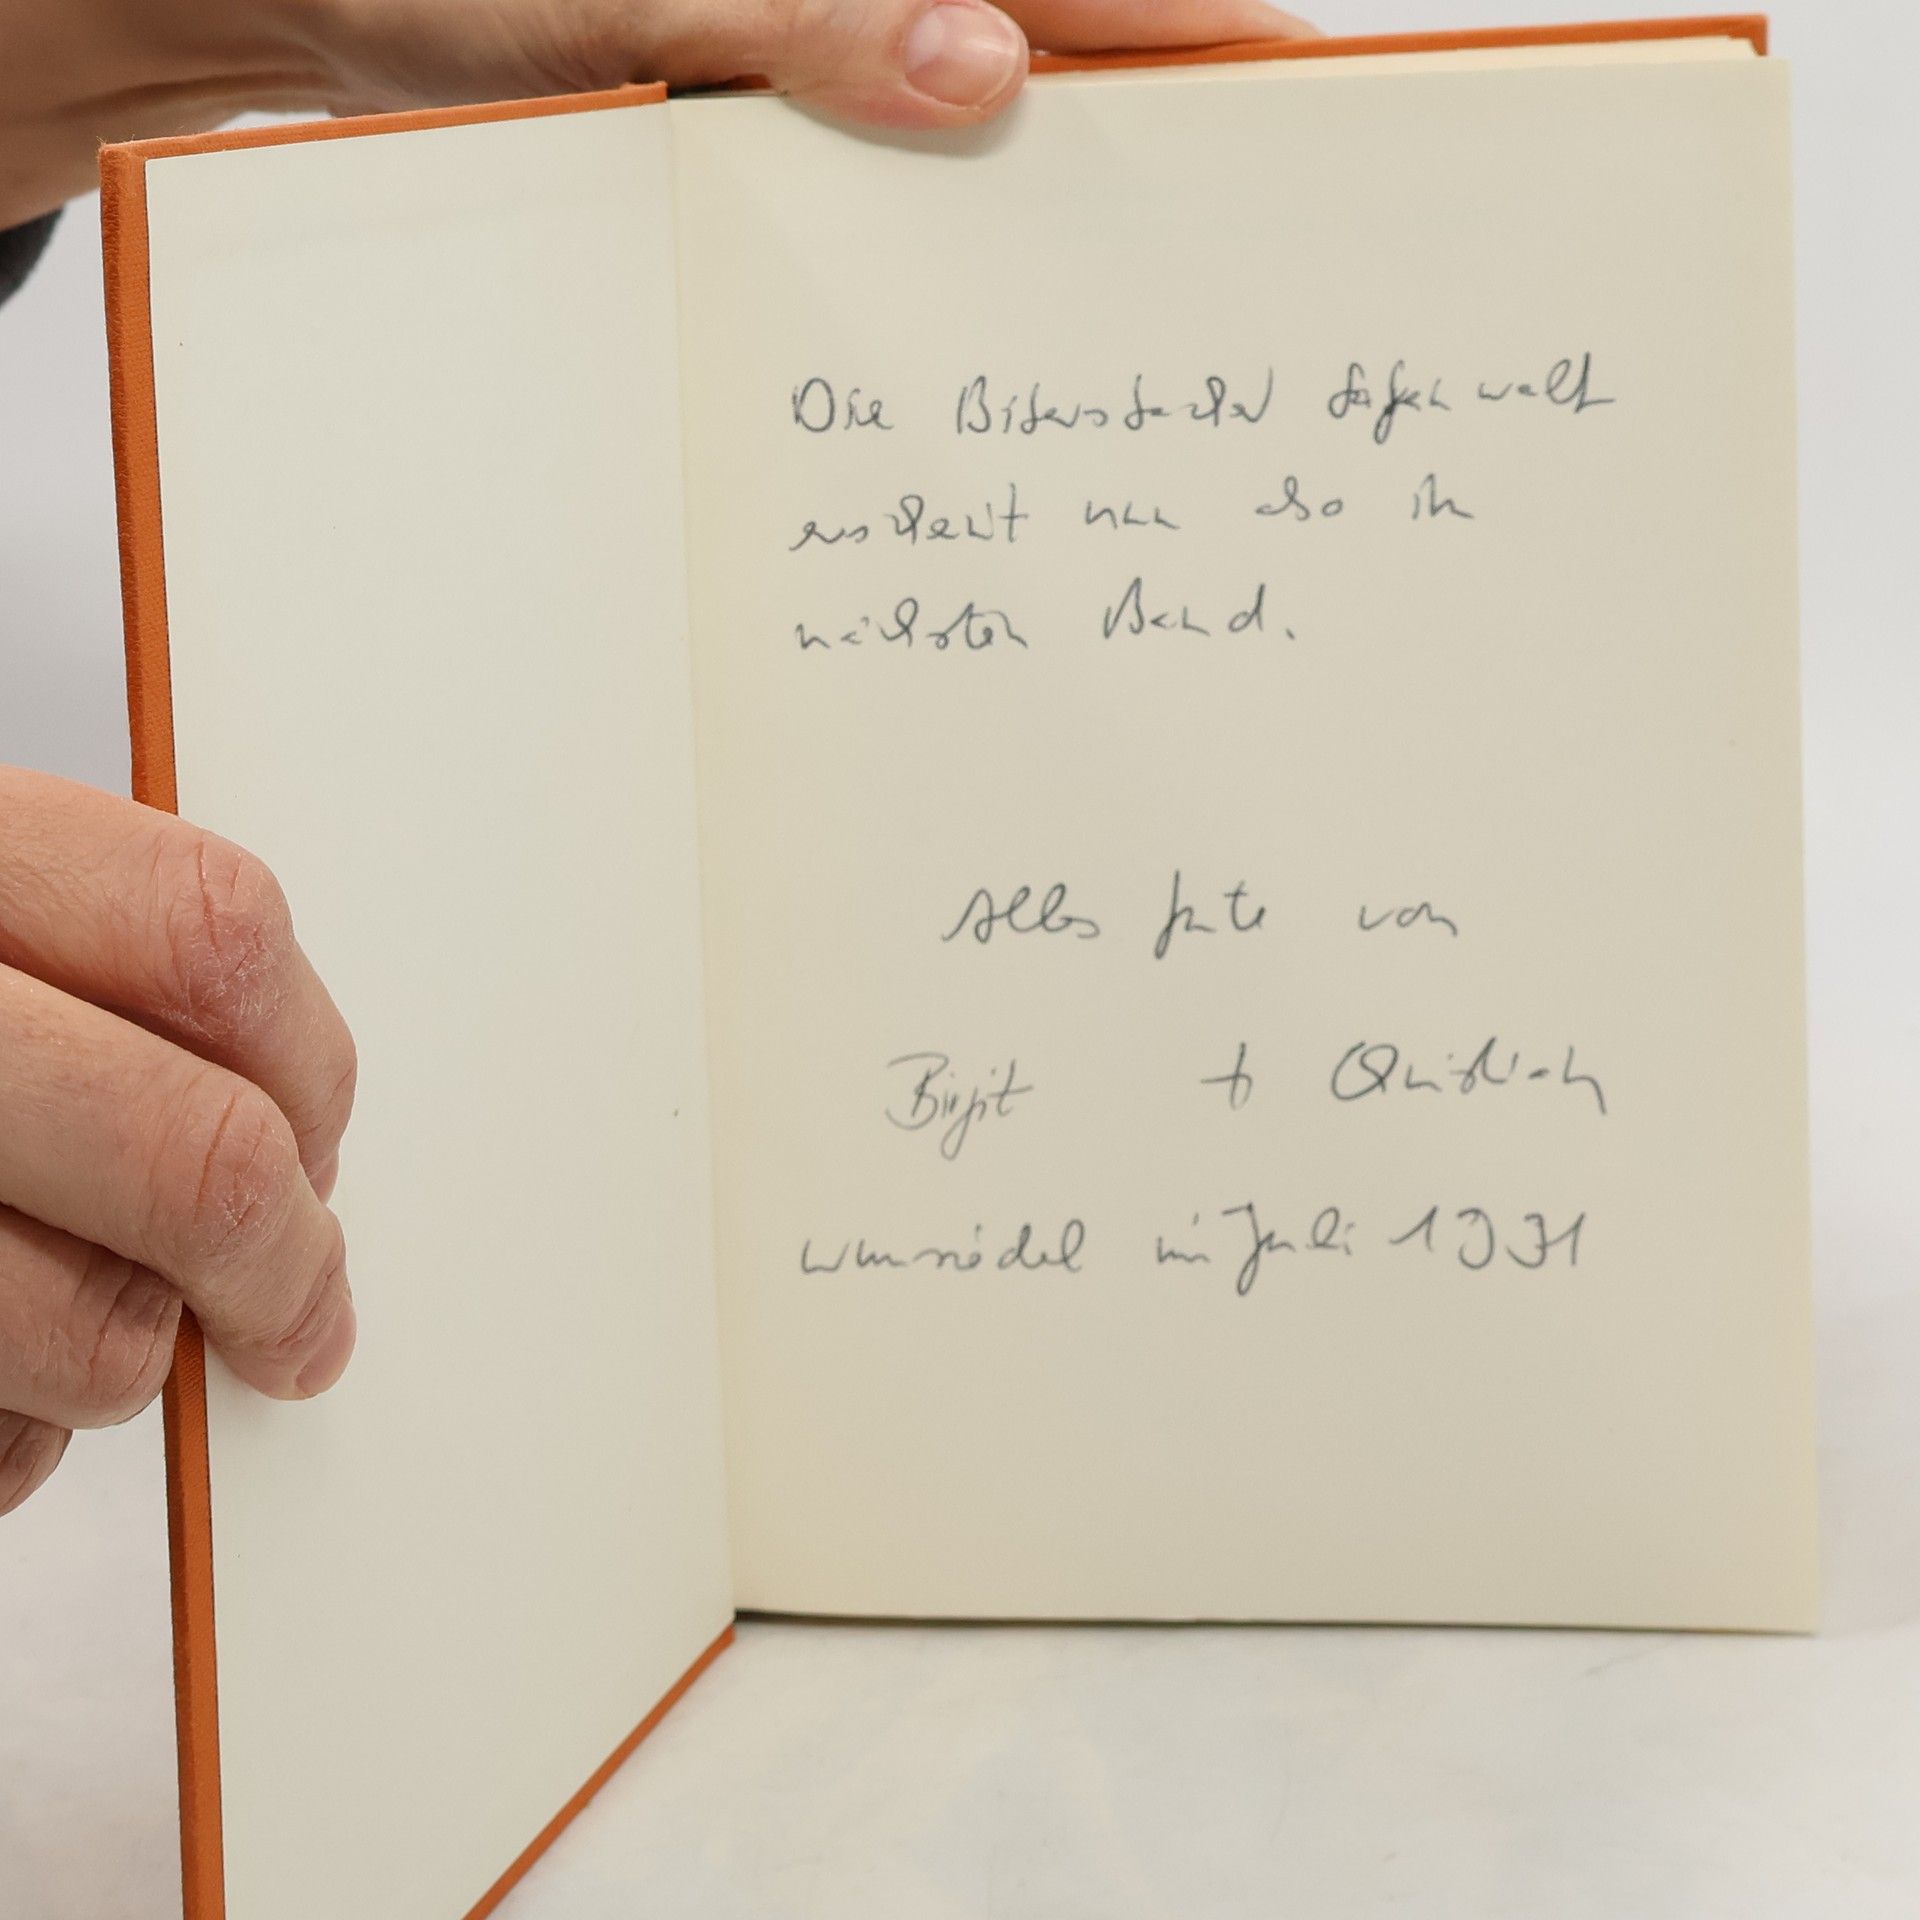 Die Bibersbacher Sagenwelt
erscheint nun also im
nächsten Band.
Alles Gute von
Birgit + Christian
Wunsiedel im Juli 1991